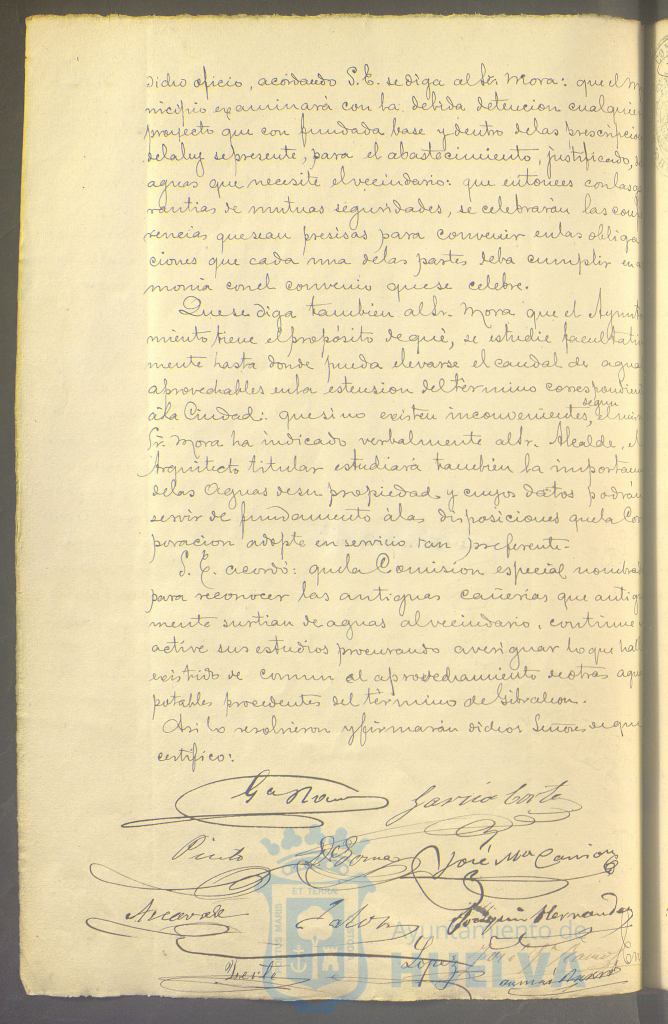 dicho oficio, acordando S.E. se diga al Sr. Mora: que el Mu
nicipio examinará con la debida detencion cualquier
proyecto que con fundada base y dentro delas prescripcio
delaley sepresente, para el abastecimiento, justificado, de
aguas que necesite elvecindario: que entonces conlas ga
rantias de mutuas seguridades, se celebrarán las con
rencias quesean presisas para convenir enlas obliga
ciones que cada una delas partes deba cumplir en ar
monia conel convenio quese celebre.
Quese diga tambien alSr. Mora que el Ayunta
miento tiene elpropósito de que, se estudie facultati
mente hasta donde pueda elevarse el caudal de aguas
aprovechables enla estension deltérmino correspondien
ála Ciudad: quesino existen inconvenientes, segun el
Sr. Mora ha indicado verbalmente alSr. Alcalde, el
Arquitecto titular estudiará tambien la importan
delas Aguas desu propiedad y cuyos datos podrán
servir de fundamento álas disposiciones quela Cor
poracion adopte en servicio tan preferente.
S. E. acordó: quela Comision especial nombra
para reconocer las antiguas cañerias que antigu
mente surtian de aguas alvecindario, continue
active sus estudios procurando averiguar lo que hal
existido de comun al aprovechamiento deotras agu
potables procedentes del término de Gibraleon.
Asi lo resolvieron y firmarán dichos Señores de que
certifico:
García Corte
Pinto José Mª Carrion
Joaquin Hernandez
Lopez
ET TERRAE
PORTUS MARIS
CUSTODIA
Ayuntamiento de
HUELVA